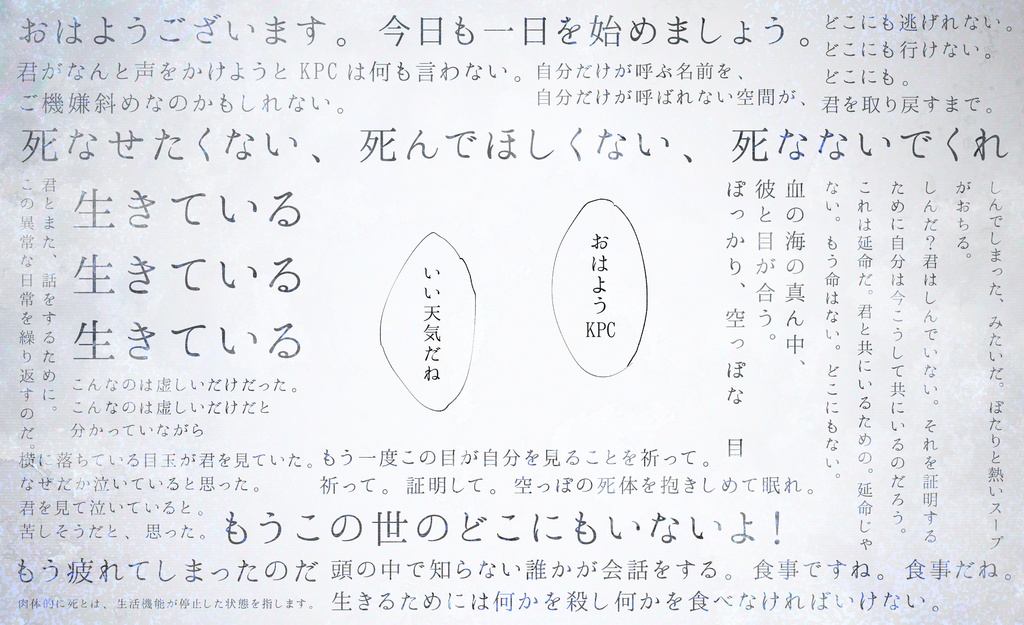 おはようございます。 今日も一日を始めましょう。
君がなんと声をかけようと KPC は何も言わない。
ご機嫌斜めなのかもしれない。
自分だけが呼ぶ名前を、
自分だけが呼ばれない空間が、
どこにも逃げれない。
どこにも行けない。
どこにも。
君を取り戻すまで。
死なせたくない、 死んでほしくない、 死なないでくれ
君とまた、話をするために。
この異常な日常を繰り返すのだ。
生きている
生きている
生きている
こんなのは虚しいだけだった。
こんなのは虚しいだけだと
分かっていながら
おはよう
KPC
いい天気だね
血の海の真ん中、
彼と目が合う。
ぽっかり、空っぽな 目
しんでしまった、みたいだ。ぼたりと熱いスープ
がおちる。
しんだ?君はしんでいない。それを証明する
ために自分は今こうして共にいるのだろう。
これは延命だ。君と共にいるための。延命じゃ
ない。もう命はない。どこにもない。
横に落ちている目玉が君を見ていた。
なぜだか泣いていると思った。
君を見て泣いていると。
苦しそうだと、思った。
もう一度この目が自分を見ることを祈って。
祈って。証明して。空っぽの死体を抱きしめて眠れ。
もうこの世のどこにもいないよ!
もう疲れてしまったのだ
頭の中で知らない誰かが会話をする。食事ですね。食事だね。
肉体的に死とは、生活機能が停止した状態を指します。
生きるためには何かを殺し何かを食べなければいけない。